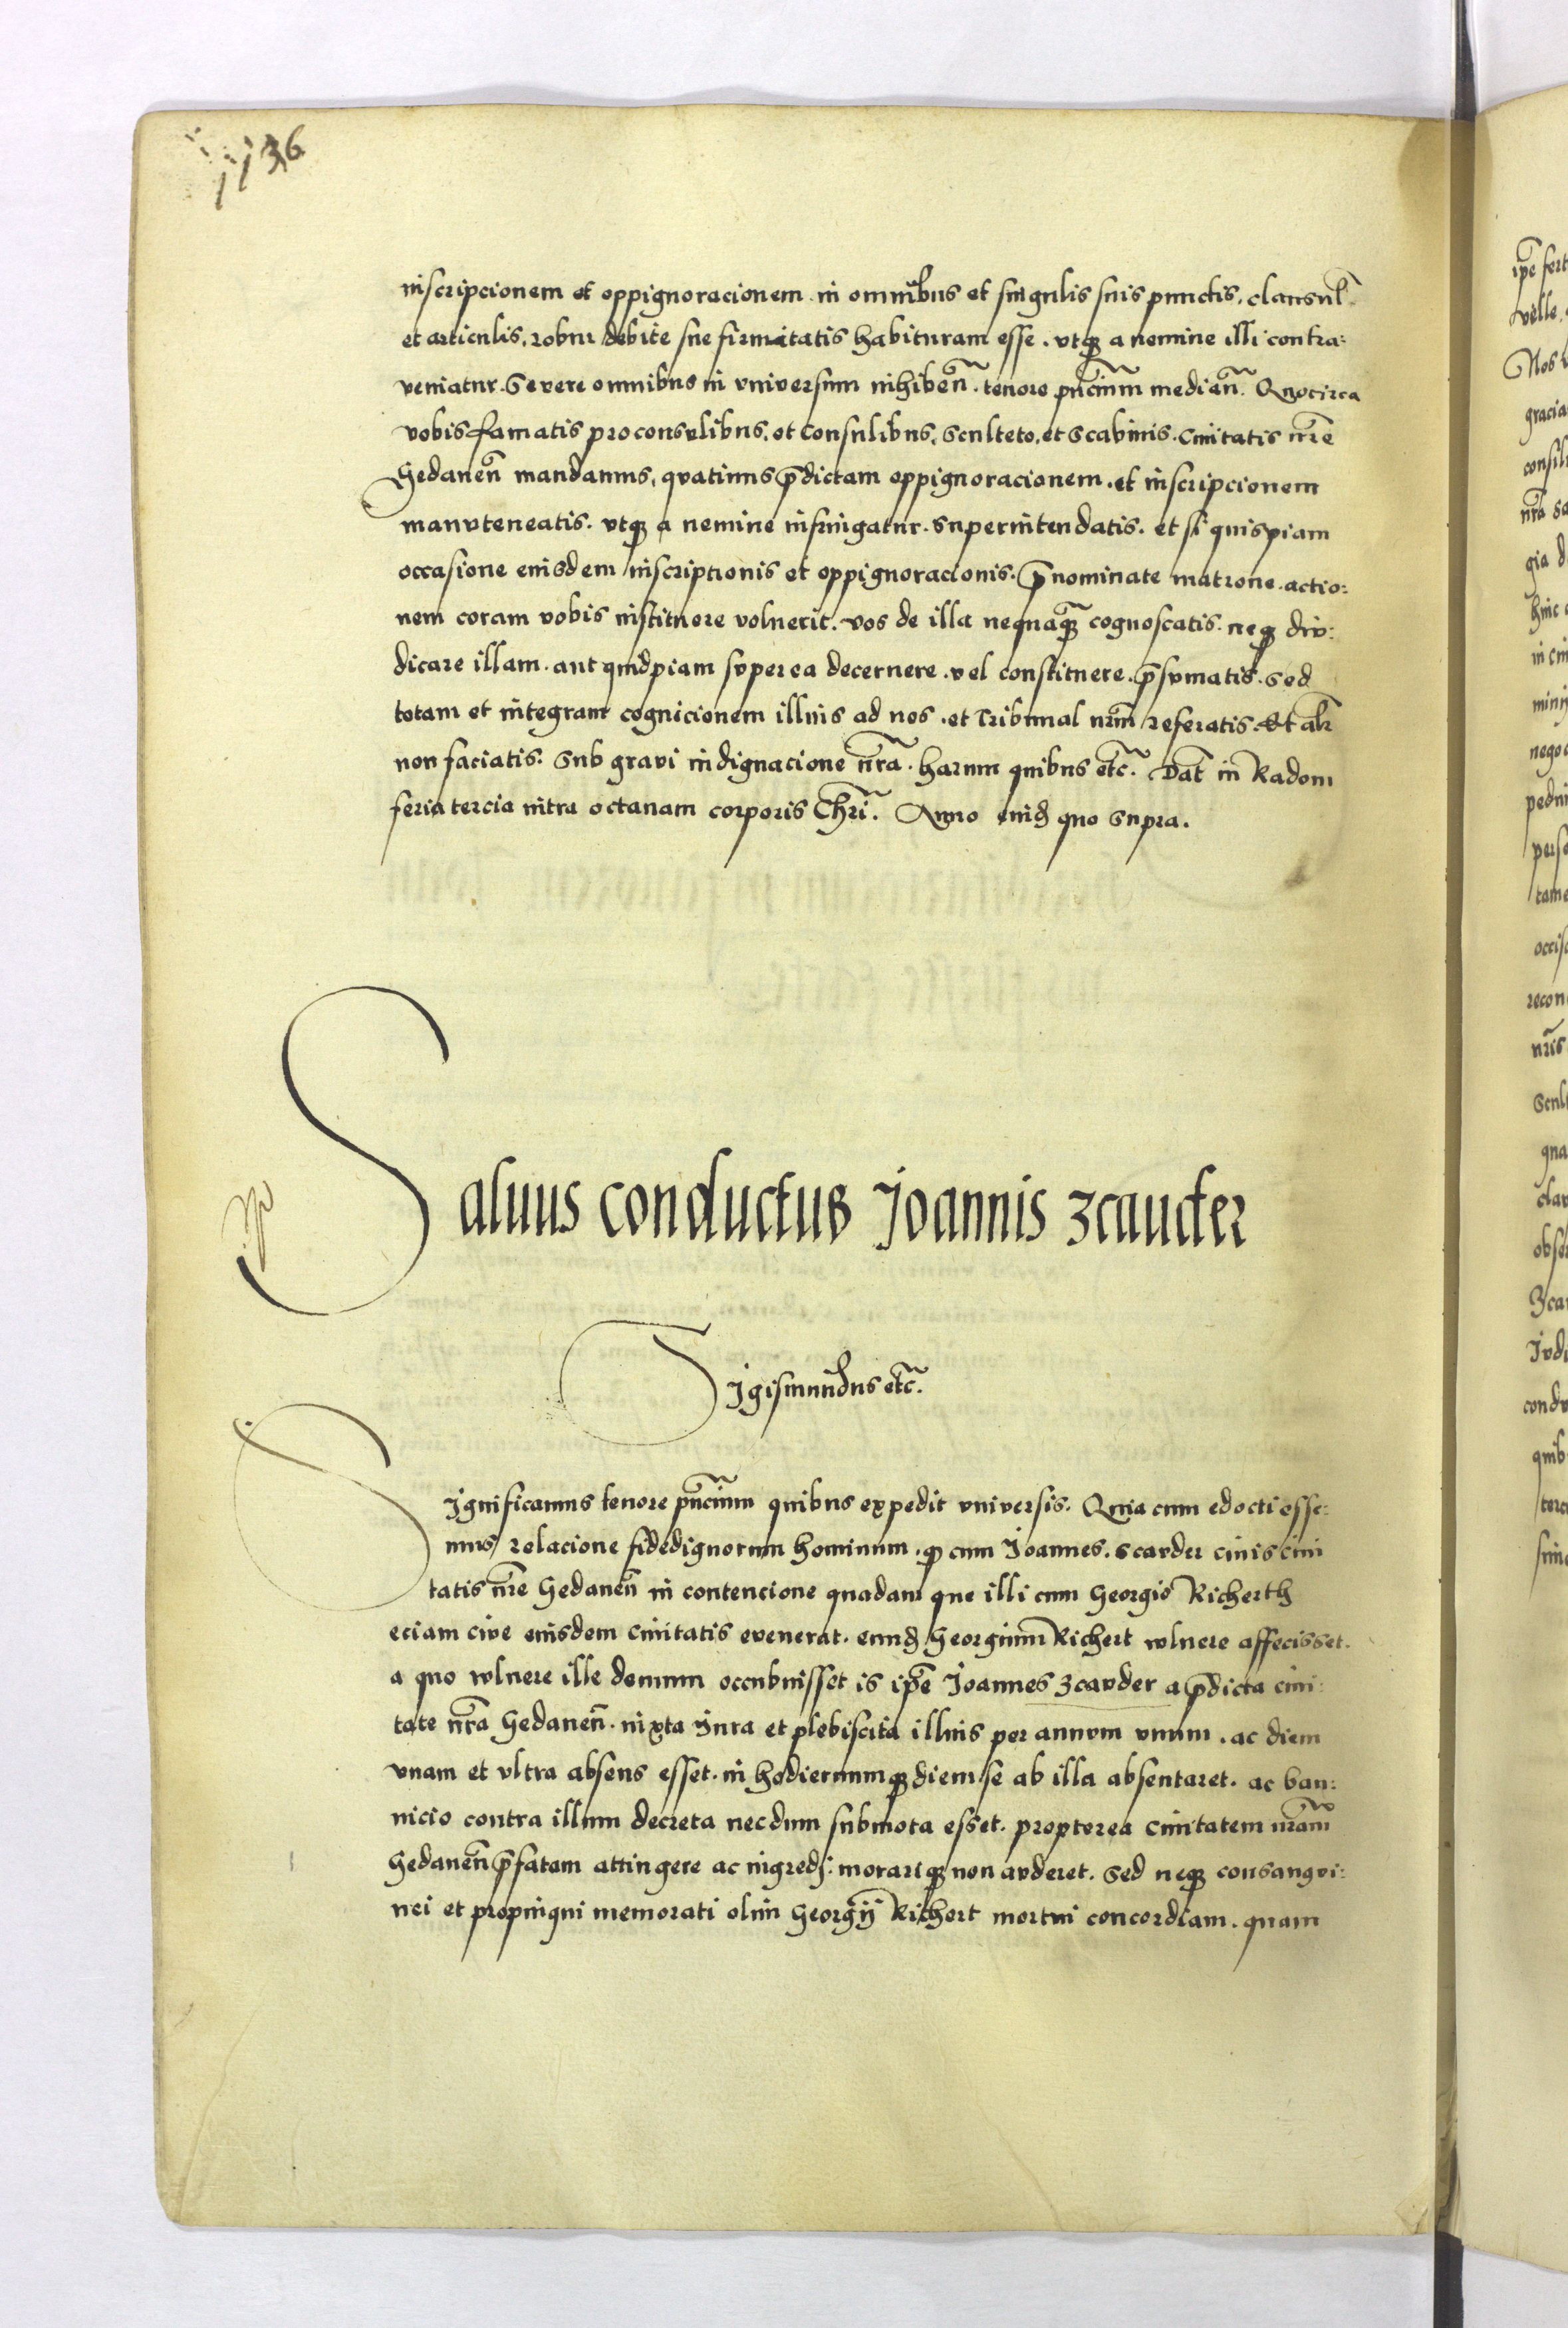 1136
inscripcionem et oppignoracionem in omnibus et singulis suis punctis, clausul̃
et articulis, robur debite sue firmitatis habituram esse. utqꝫ a nemine illi contra:
veniatur. Severe omnibus in universum inhibeñ. tenore pñcium medieñ. Quocirca
vobis famatis proconsulibus, et Consulibus, Sculteto, et Scabinis. Civitatis nr̃e
Gedaneñ mandamus, quatinus p̃dictam oppignoracionem. et inscripcionem
manuteneatis. utqꝫ a nemine infringatur. Superintendatis. et si quispiam
occasione eiusdem inscriptionis et oppignoracionis. p̃nominate matrone. actio:
nem coram vobis instituere voluerit. vos de illa nequaqꝫ cognoscatis. neqꝫ diu:
dicare illam. aut quidpiam super ea decernere. vel constituere. p̃sumatis. Sed
totam et integram cognicionem illius ad nos. et Tribunal nrm̃ referatis. Et alr̃
non faciatis. Sub gravi indignacione nr̃a. harum quibus etc̃. Dat̃ in Radom
feria tercia intra octavam corporis Chri̇̃. Anno euiꝺ quo supra.
Salvus conductus Joannis Zcauder
Sigismundus etc̃.
Significamus tenore pñcium quibus expedit universis. Quia cum edocti esse:
mus relacione fidedignorum hominum. qꝫ cum Joannes. Scauder civis civi
tatis nr̃e Gedaneñ in contencione quadam que illi cum Georgio Richerth
eciam cive eiusdem civitatis evenerat. eunꝺ Georgium Richert vulnere affecisset.
a quo vulnere ille demum occubuisset is ip̃e Joannes Zcauder a p̃dicta civi:
tate nr̃a Gedaneñ. iuxta iura et plebiscita illius per annum unum. ac diem
unam et ultra absens esset. in hodiernumqꝫ diem se ab illa absentaret. ac ban:
nicio contra illum decreta necdum submota esset. propterea Civitatem nr̃am
Gedaneñ p̃fatam attingere ac ingredi: morariqꝫ non auderet. Sed neqꝫ consangui:
nei et propinqui memorati olim Georgij Richert mortui concordiam. quam